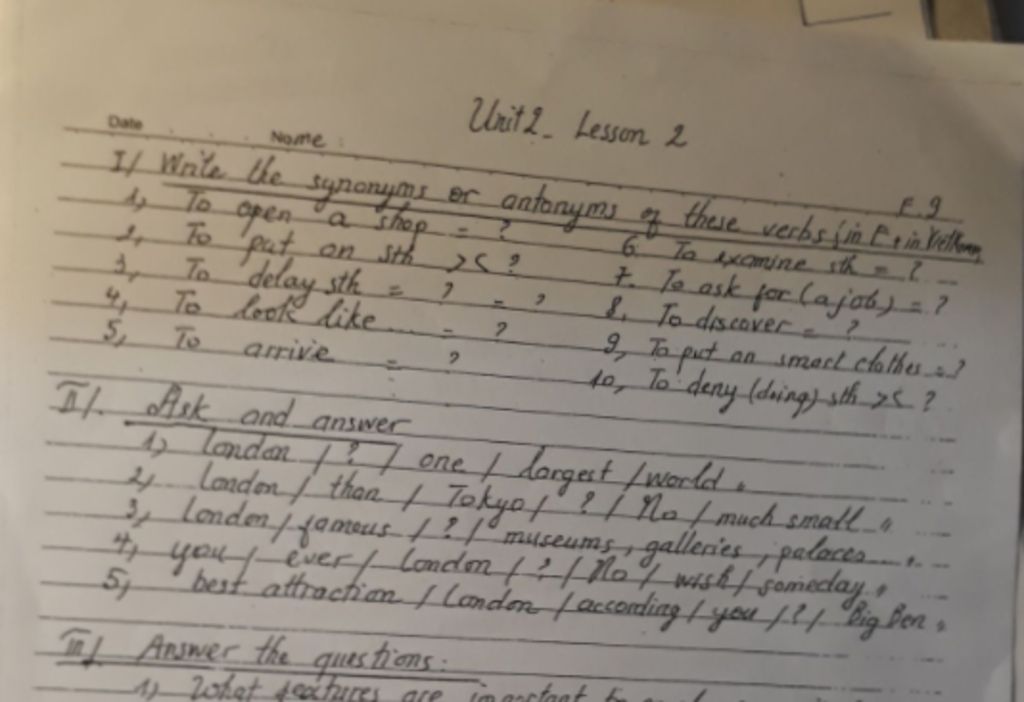 Unit 2 - Lesson 2
Date Name :
E.9
I/ Write the synonyms or antonyms of these verbs (in E, in Vietnam
1, To open a shop = ?
2, To put on sth >< ?
3, To delay sth = ? = ?
4, To look like ... = ?
5, To arrive = ?
6. To examine sth = ?
7. To ask for (a job) = ?
8, To discover = ?
9, To put on smart clothes = ?
10, To deny (doing) sth >< ?
II/. Ask and answer
1) London / ? / one / largest / world.
2, London / than / Tokyo / ? / No / much small.
3, London / famous / ? / museums, galleries, palaces.
4, you / ever / London / ? / No / wish / someday.
5, best attraction / London / according / you / ? / Big Ben.
III/ Answer the questions:
1) What features are important to